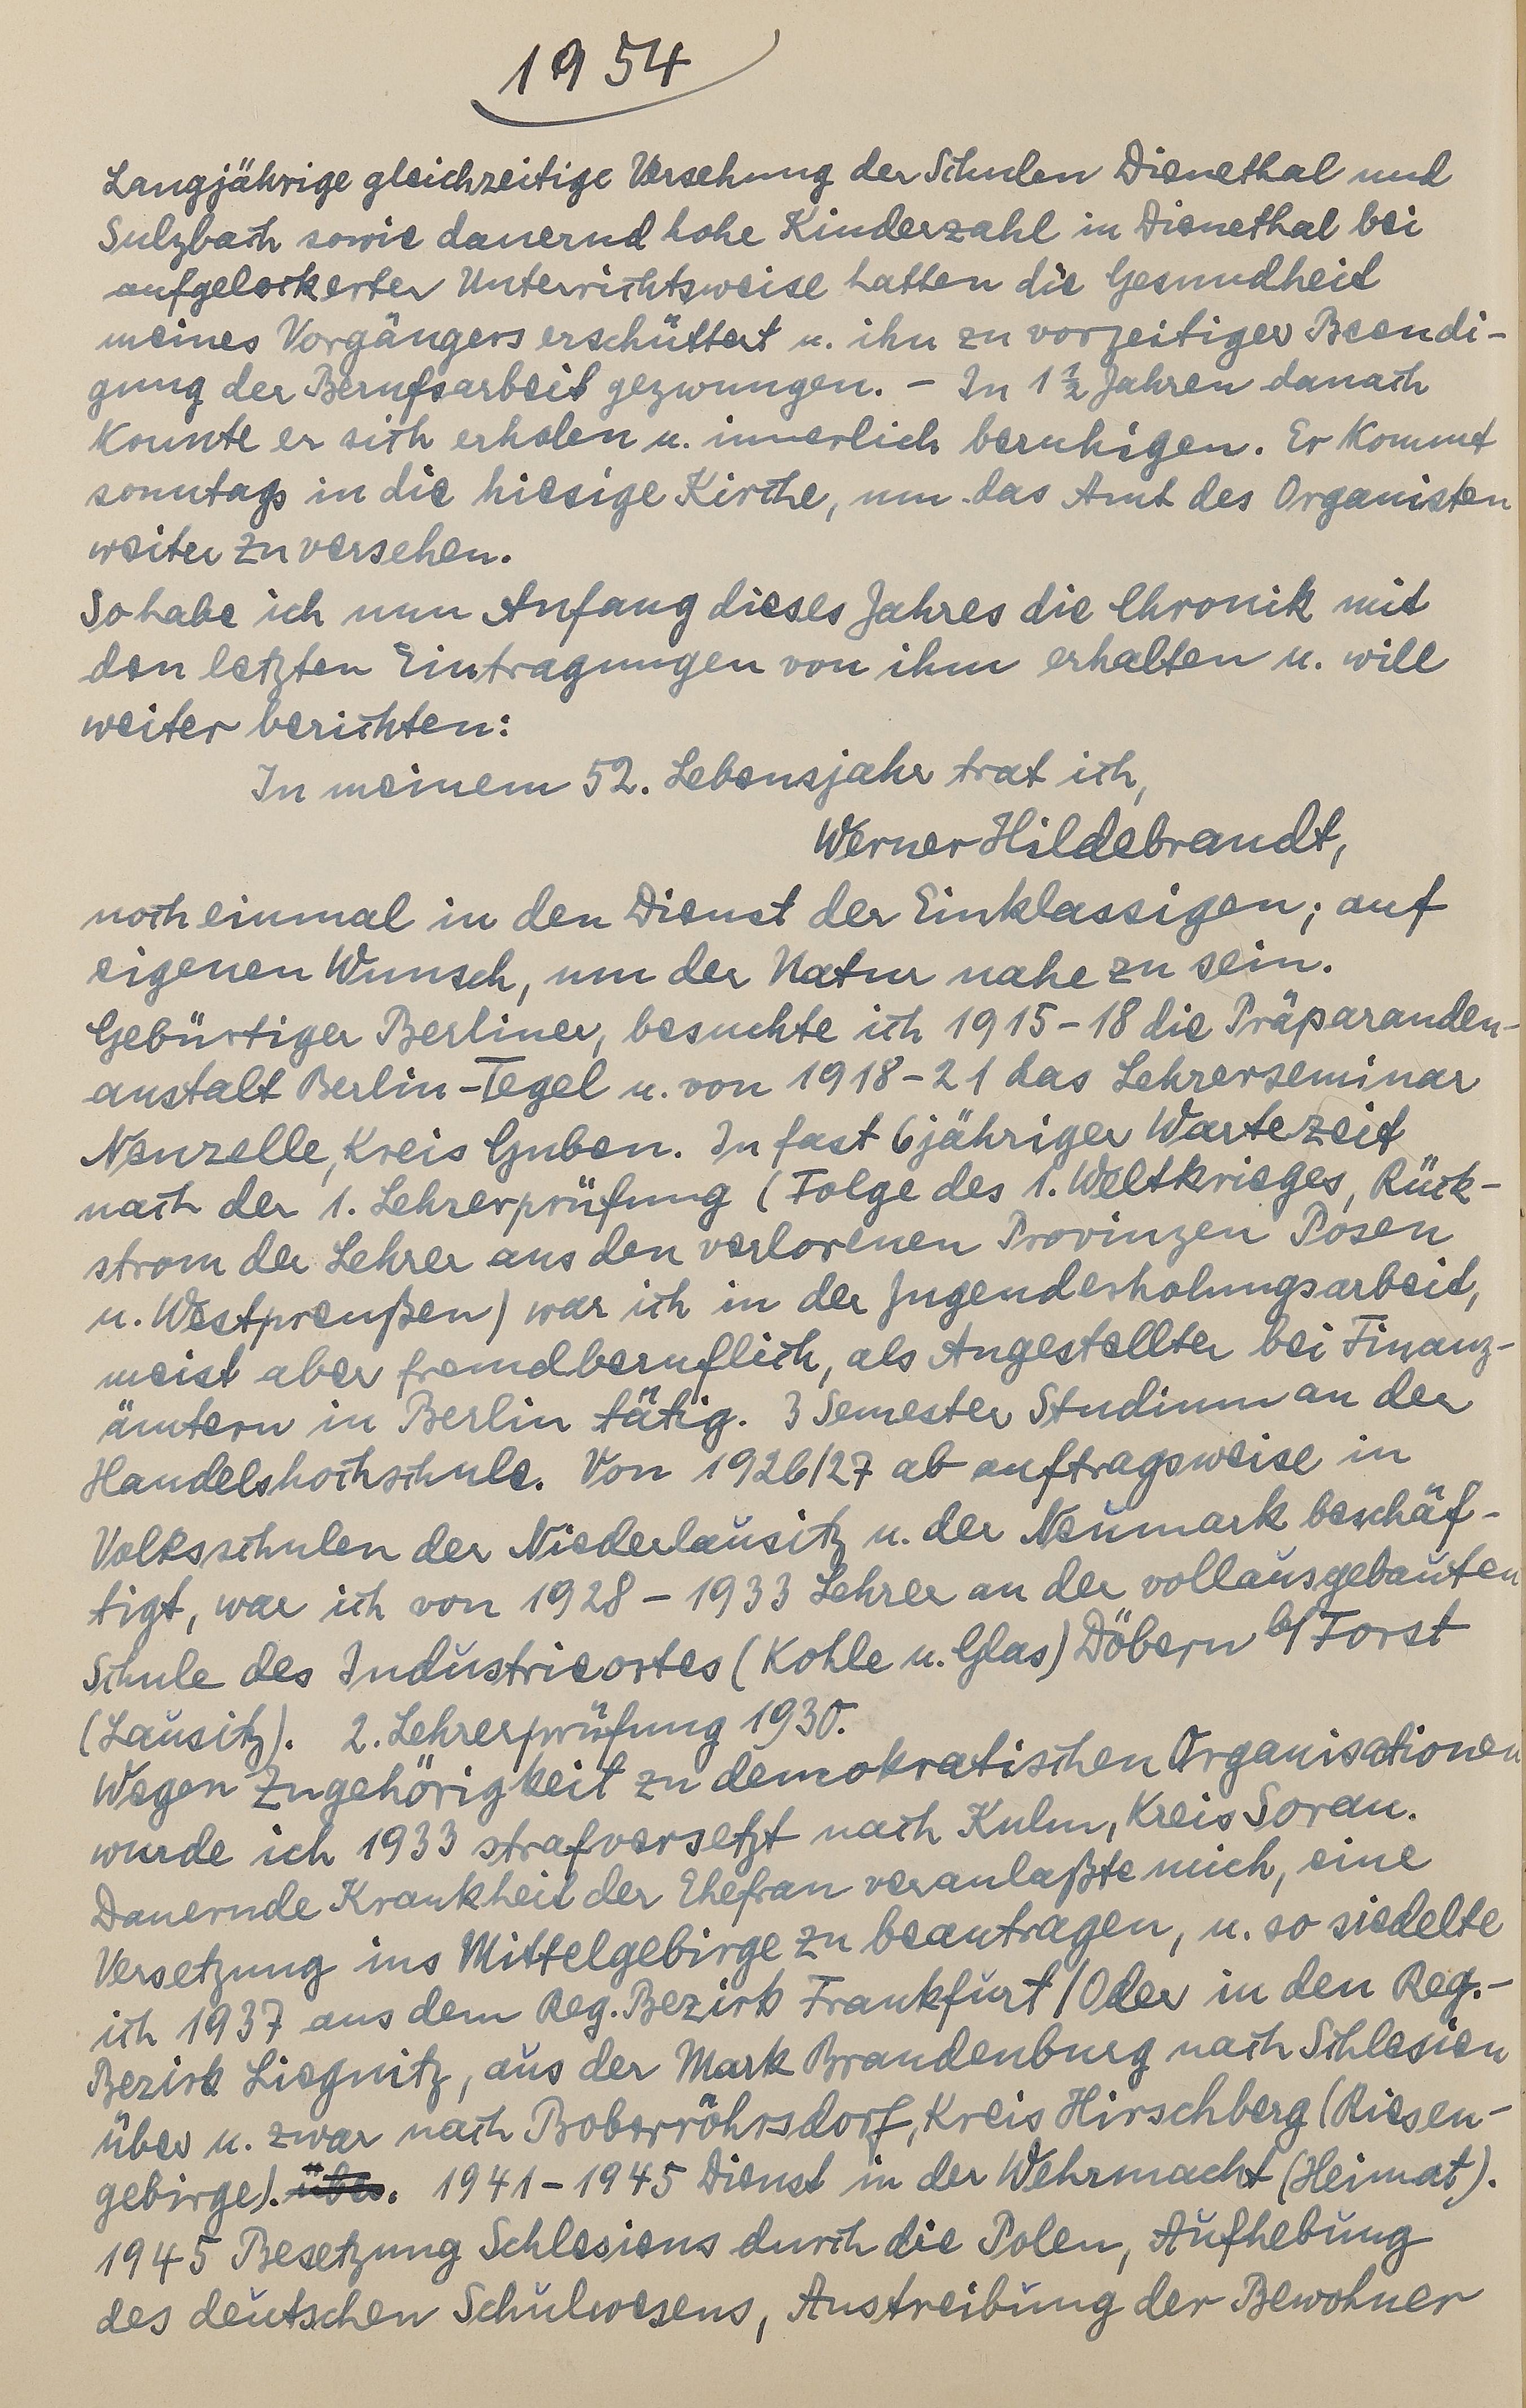 1954
Langjährige gleichzeitige Versehung der Schulen Dienethal und
Sulzbach sowie dauernd hohe Kinderzahl in Dienethal bei
aufgelockerter Unterrichtsweise hatten die Gesundheit
meines Vorgängers erschüttert u. ihn zu vorzeitiger Beendi-
gung der Berufsarbeit gezwungen. - In 1 1/2 Jahren danach
konnte er sich erholen u. innerlich beruhigen. Er kommt
sonntags in die hiesige Kirche, um das Amt des Organisten
weiter zu versehen.
So habe ich nun Anfang dieses Jahres die Chronik mit
den letzten Eintragungen von ihm erhalten u. will
weiter berichten:
In meinem 52. Lebensjahr trat ich,
Werner Hildebrandt,
noch einmal in den Dienst der Einklassigen; auf
eigenen Wunsch, um der Natur nahe zu sein.
Gebürtiger Berliner, besuchte ich 1915-18 die Präparanden-
anstalt Berlin-Tegel u. von 1918-21 das Lehrerseminar
Neuzelle, Kreis Guben. In fast 6jähriger Wartezeit
nach der 1. Lehrerprüfung (Folge des 1. Weltkrieges, Rück-
strom der Lehrer aus den verlorenen Provinzen Posen
u. Westpreußen) war ich in der Jugenderholungsarbeit,
meist aber fremdberuflich, als Angestellter bei Finanz-
ämtern in Berlin tätig. 3 Semester Studium an der
Handelshochschule. Von 1926/27 ab auftragsweise in
Volksschulen der Niederlausitz u. der Neumark beschäf-
tigt, war ich von 1928 - 1933 Lehrer an der vollausgebauten
Schule des Industrieortes (Kohle u. Glas) Döbern b/Forst
(Lausitz). 2. Lehrerprüfung 1930.
Wegen Zugehörigkeit zu demokratischen Organisationen
wurde ich 1933 strafversetzt nach Kulm, Kreis Sorau.
Dauernde Krankheit der Ehefrau veranlaßte mich, eine
Versetzung ins Mittelgebirge zu beantragen, u. so siedelte
ich 1937 aus dem Reg. Bezirk Frankfurt/Oder in den Reg.-
Bezirk Liegnitz, aus der Mark Brandenburg nach Schlesien
über u. zwar nach Boberröhrsdorf, Kreis Hirschberg (Riesen-
gebirge). über. 1941-1945 Dienst in der Wehrmacht (Heimat).
1945 Besetzung Schlesiens durch die Polen, Aufhebung
des deutschen Schulwesens, Austreibung der Bewohner